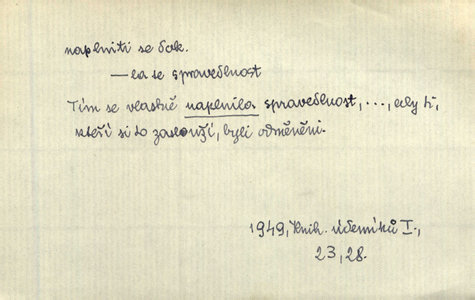 naplniti se dok.
— la se spravedlnost
Tím se vlastně naplnila spravedlnost, ..., aby ti,
kteří si to zaslouží, byli odměněni.
1949, Knih. úderníků I.,
23, 28.